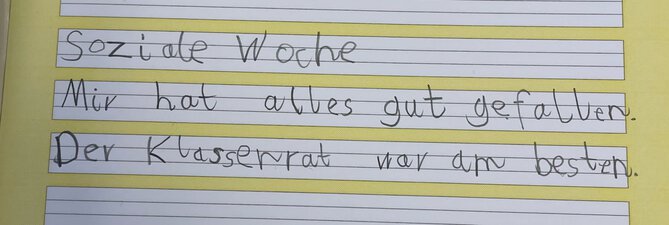 Soziale Woche
Mir hat alles gut gefallen.
Der Klassenrat war am besten.